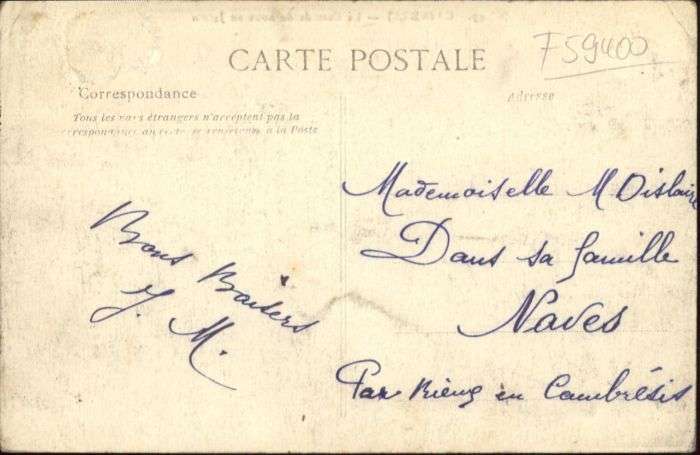 F59400
CARTE POSTALE
Correspondance
Adresse
Tous les pays étrangers n'acceptent pas la
correspondance au recto se renseigner à la Poste
Mademoiselle M Dislaire
Dans sa famille
Naves
Par Rieux en Cambrésis
Bons Baisers
J. M.